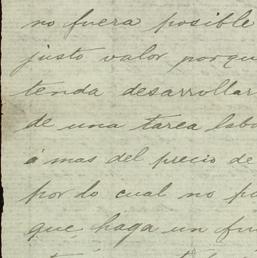 no fuera posible
justo valor porqu
tenda desarrollar
de una tarea labo
á mas del precio de
por lo cual no p
que haga un fu